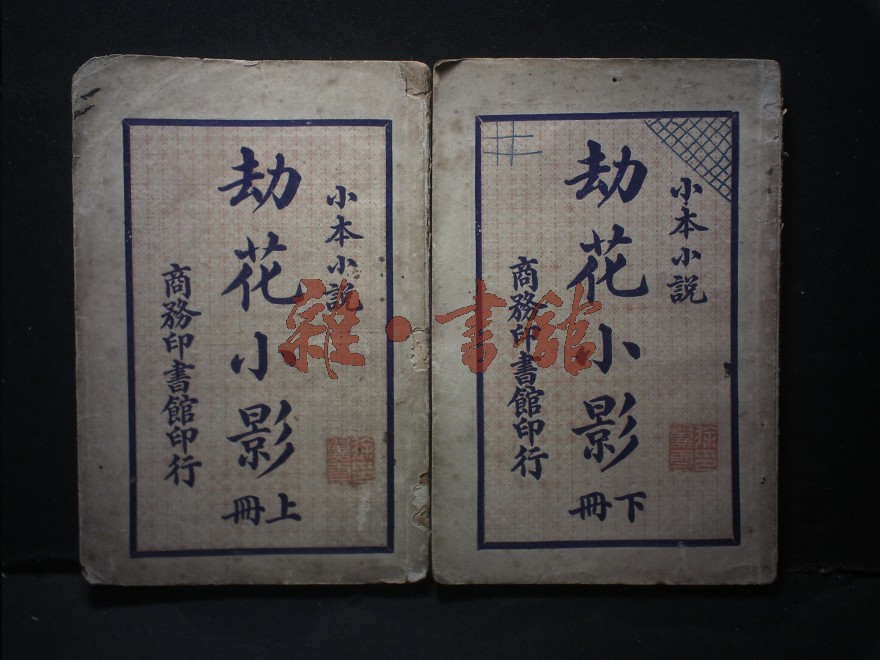 小本小説
劫花小影
上冊
商務印書館印行
小本小説
劫花小影
下冊
商務印書館印行
雜·書館